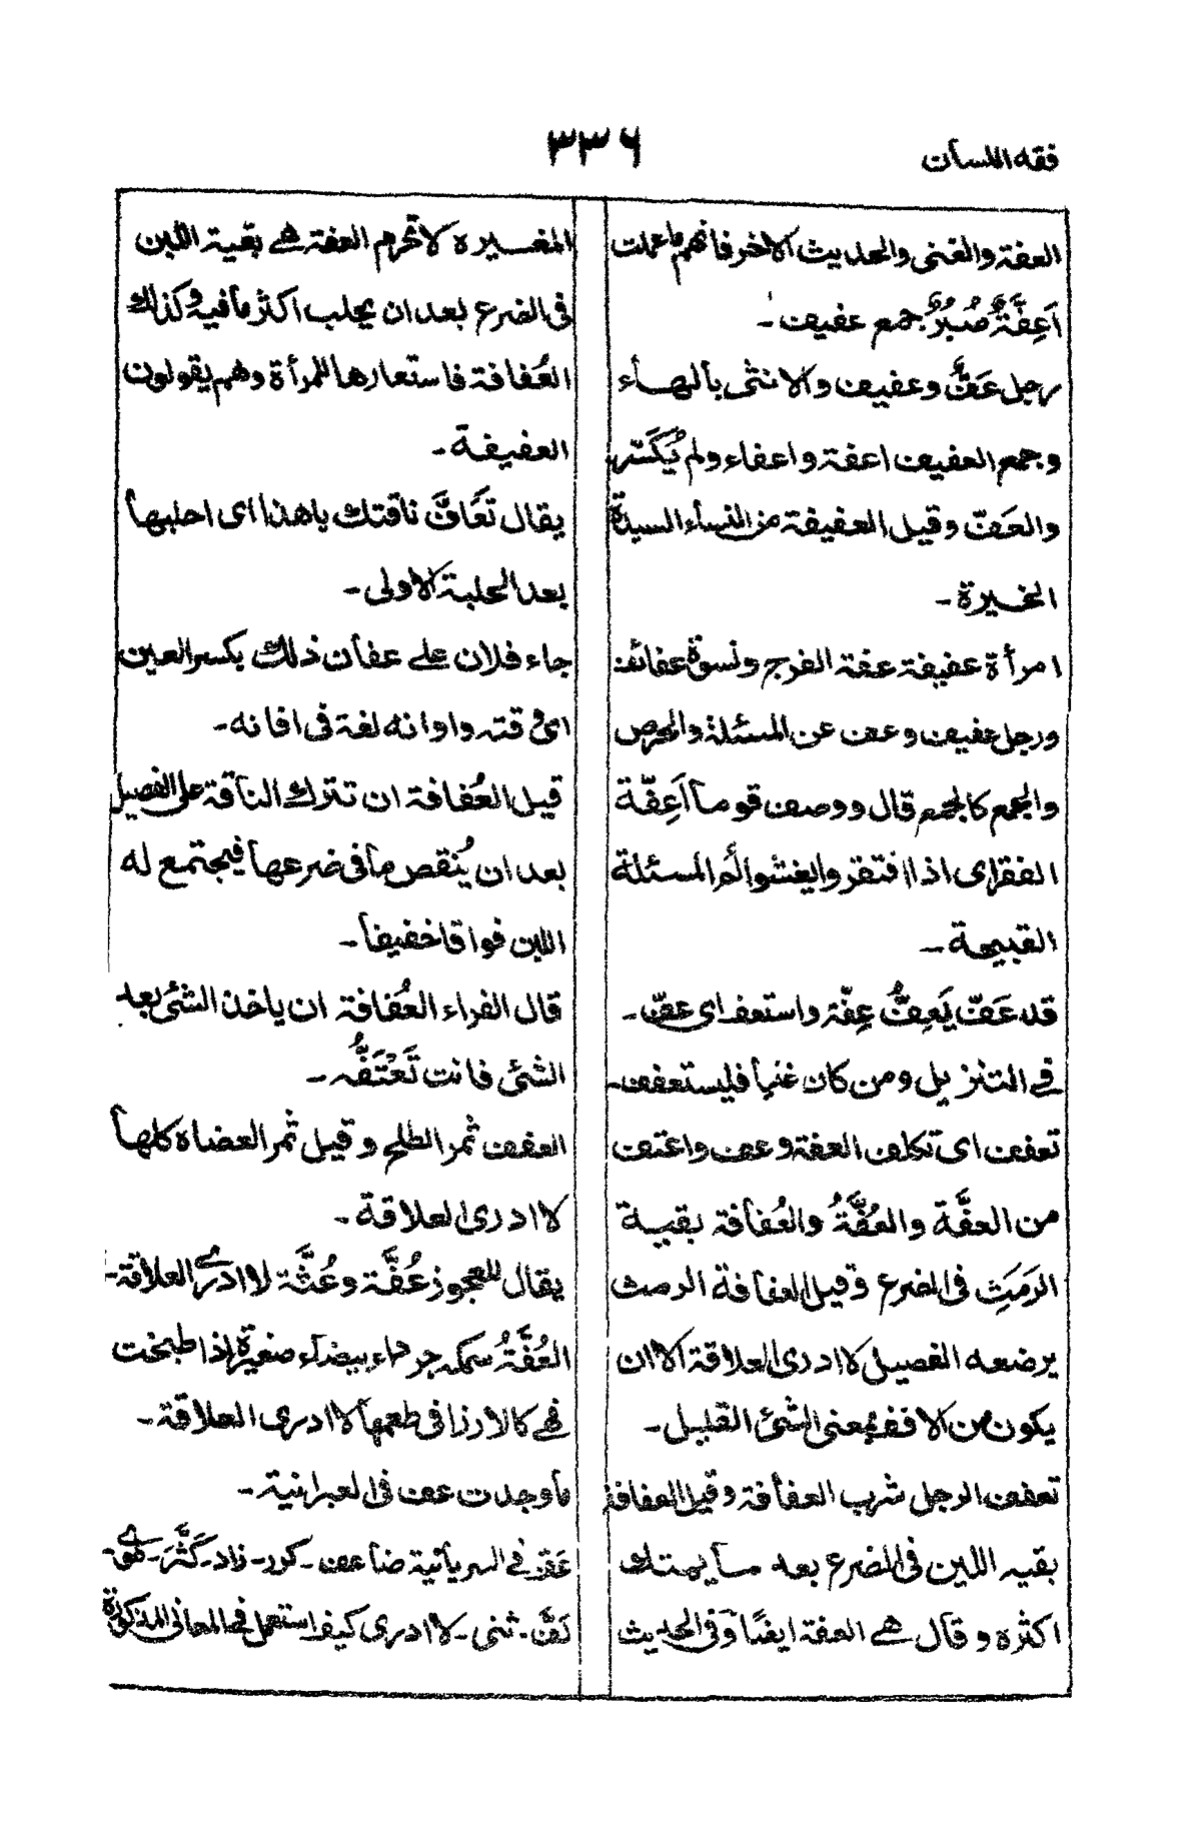 فقه اللسان
٣٣٦
العفة والغنى والحديث الاخر فانهم ما علمت
اَعِفَّةٌ صُبُرٌ جمع عفيف -
رجل عَفٌّ وعفيف والانثى بالهاء
وجمع العفيف اعفة واعفاء ولم يُكَسّر
والعَفّ وقيل العفيفة من النساء السيدة
الخيرة -
امرأة عفيفة عفة الفرج ونسوة عفائف
ورجل عفيف وعف عن المسئلة والحرص
والجمع كالجمع قال ووصف قوما اَعِفّة
الفقر اى اذا افتقروا لم يغشوا المسئلة
القبيحة -
قد عَفّ يَعِفُّ عِفّة واستعف اى عفّ -
فى التنزيل ومن كان غنيا فليستعفف -
تعفف اى تكلف العفة وعف واعتف
من العفَّة والعُفَّةُ والعُفافة بقية
الرَمَثِ فى الضرع وقيل العفافة الرمث
يرضعه الفصيل لا ادرى العلاقة الا ان
يكون من الاقف بمعنى الشئ القليل -
تعفف الرجل شرب العفافة وقيل العفافة
بقيه اللبن فى الضرع بعد ما يمتك
اكثره وقال هى العفة ايضًا وفى الحديث
المغيرة لا تحرم العفة هى بقية اللبن
فى الضرع بعد ان يحلب اكثر ما فيه وكذلك
العُفافة فاستعارها للمرأة وهم يقولون
العفيفة -
يقال تَعَافَّ ناقتك ياهذا اى احلبها
بعد الحلبة الاولى -
جاء فلان على عفان ذلك بكسر العين
اى وقته واوانه لغة فى افانه -
قيل العُفافة ان تترك الناقة على الفصيل
بعد ان يُنقص ما فى ضرعها فيجتمع له
اللبن فواقا خفيفا -
قال الفراء العُفافة ان ياخذ الشئ بعد
الشئ فانت تَعْتَفُّه -
العفف ثمر الطلح وقيل ثمر العضاه كلها
لا ادرى العلاقة -
يقال للعجوز عُفَّة وعُثَّة لا ادرى العلاقة -
العُفَّةُ سمكه جرداء بيضاء صغيرة اذا طبخت
فهى كالارز فى طعمها لا ادرى العلاقة -
ما وجدت عف فى العبرانية -
عَفّ فى السريانية ضاعف - كور - زاد - كَثَّرَ -
لَفَّ - ثنى - لا ادرى كيف استعمل فى المعانى المذكورة